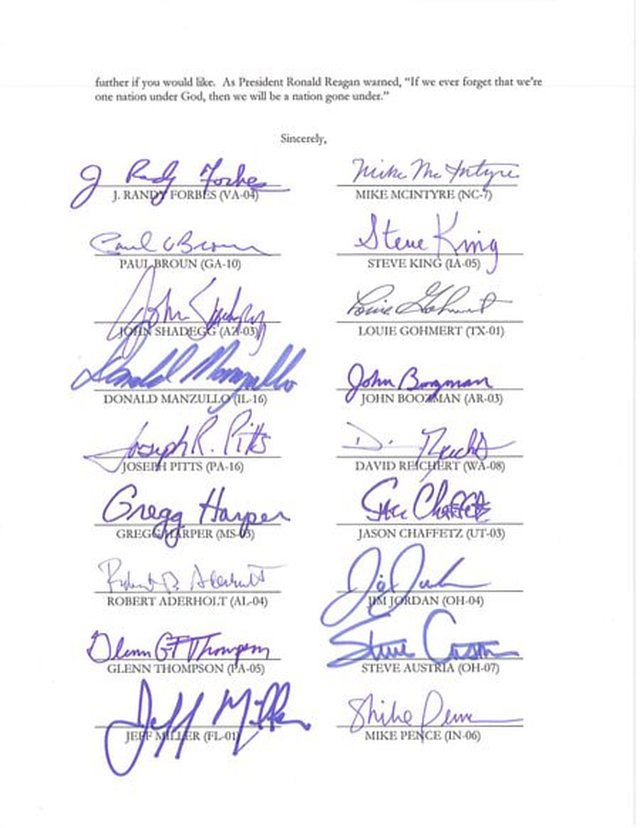 further if you would like. As President Ronald Reagan warned, “If we ever forget that we’re
one nation under God, then we will be a nation gone under.”
Sincerely,
J Randy Forbes
J. RANDY FORBES (VA-04)
Mike McIntyre
MIKE MCINTYRE (NC-7)
Paul C Broun
PAUL BROUN (GA-10)
Steve King
STEVE KING (IA-05)
John Shadegg
JOHN SHADEGG (AZ-03)
Louie Gohmert
LOUIE GOHMERT (TX-01)
Donald Manzullo
DONALD MANZULLO (IL-16)
John Boozman
JOHN BOOZMAN (AR-03)
Joseph R. Pitts
JOSEPH PITTS (PA-16)
D. Reichert
DAVID REICHERT (WA-08)
Gregg Harper
GREGG HARPER (MS-03)
Chaffetz
JASON CHAFFETZ (UT-03)
Robert B. Aderholt
ROBERT ADERHOLT (AL-04)
Jim Jordan
JIM JORDAN (OH-04)
Glenn GT Thompson
GLENN THOMPSON (PA-05)
Steve Austria
STEVE AUSTRIA (OH-07)
Jeff Miller
JEFF MILLER (FL-01)
Mike Pence
MIKE PENCE (IN-06)